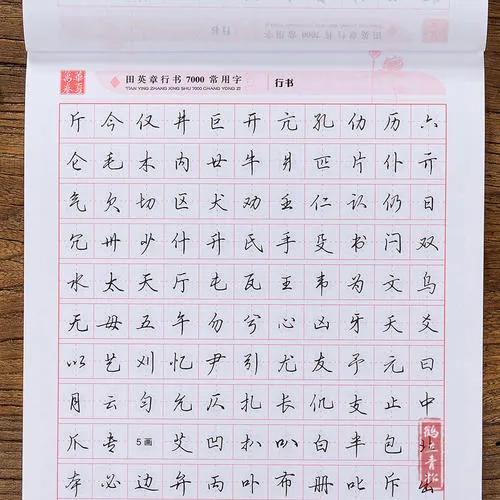 田英章行书 7000 常用字
行书
TIAN YING ZHANG XING SHU 7000 CHANG YONG ZI
斤今仅井巨开亢孔仂历六
仑毛木内廿牛爿匹片仆
气欠切区犬劝壬仁认仍日
冗卅少什升氏手殳书闩双
水太天厅屯瓦王韦为文乌
无毋五午勿兮心凶牙夭爻
以艺刈忆尹引尤友予元曰
月云匀允仄扎长仉支止中
爪专 5画 艾凹扒叭白半包
本必边弁丙卟布册叱斥出